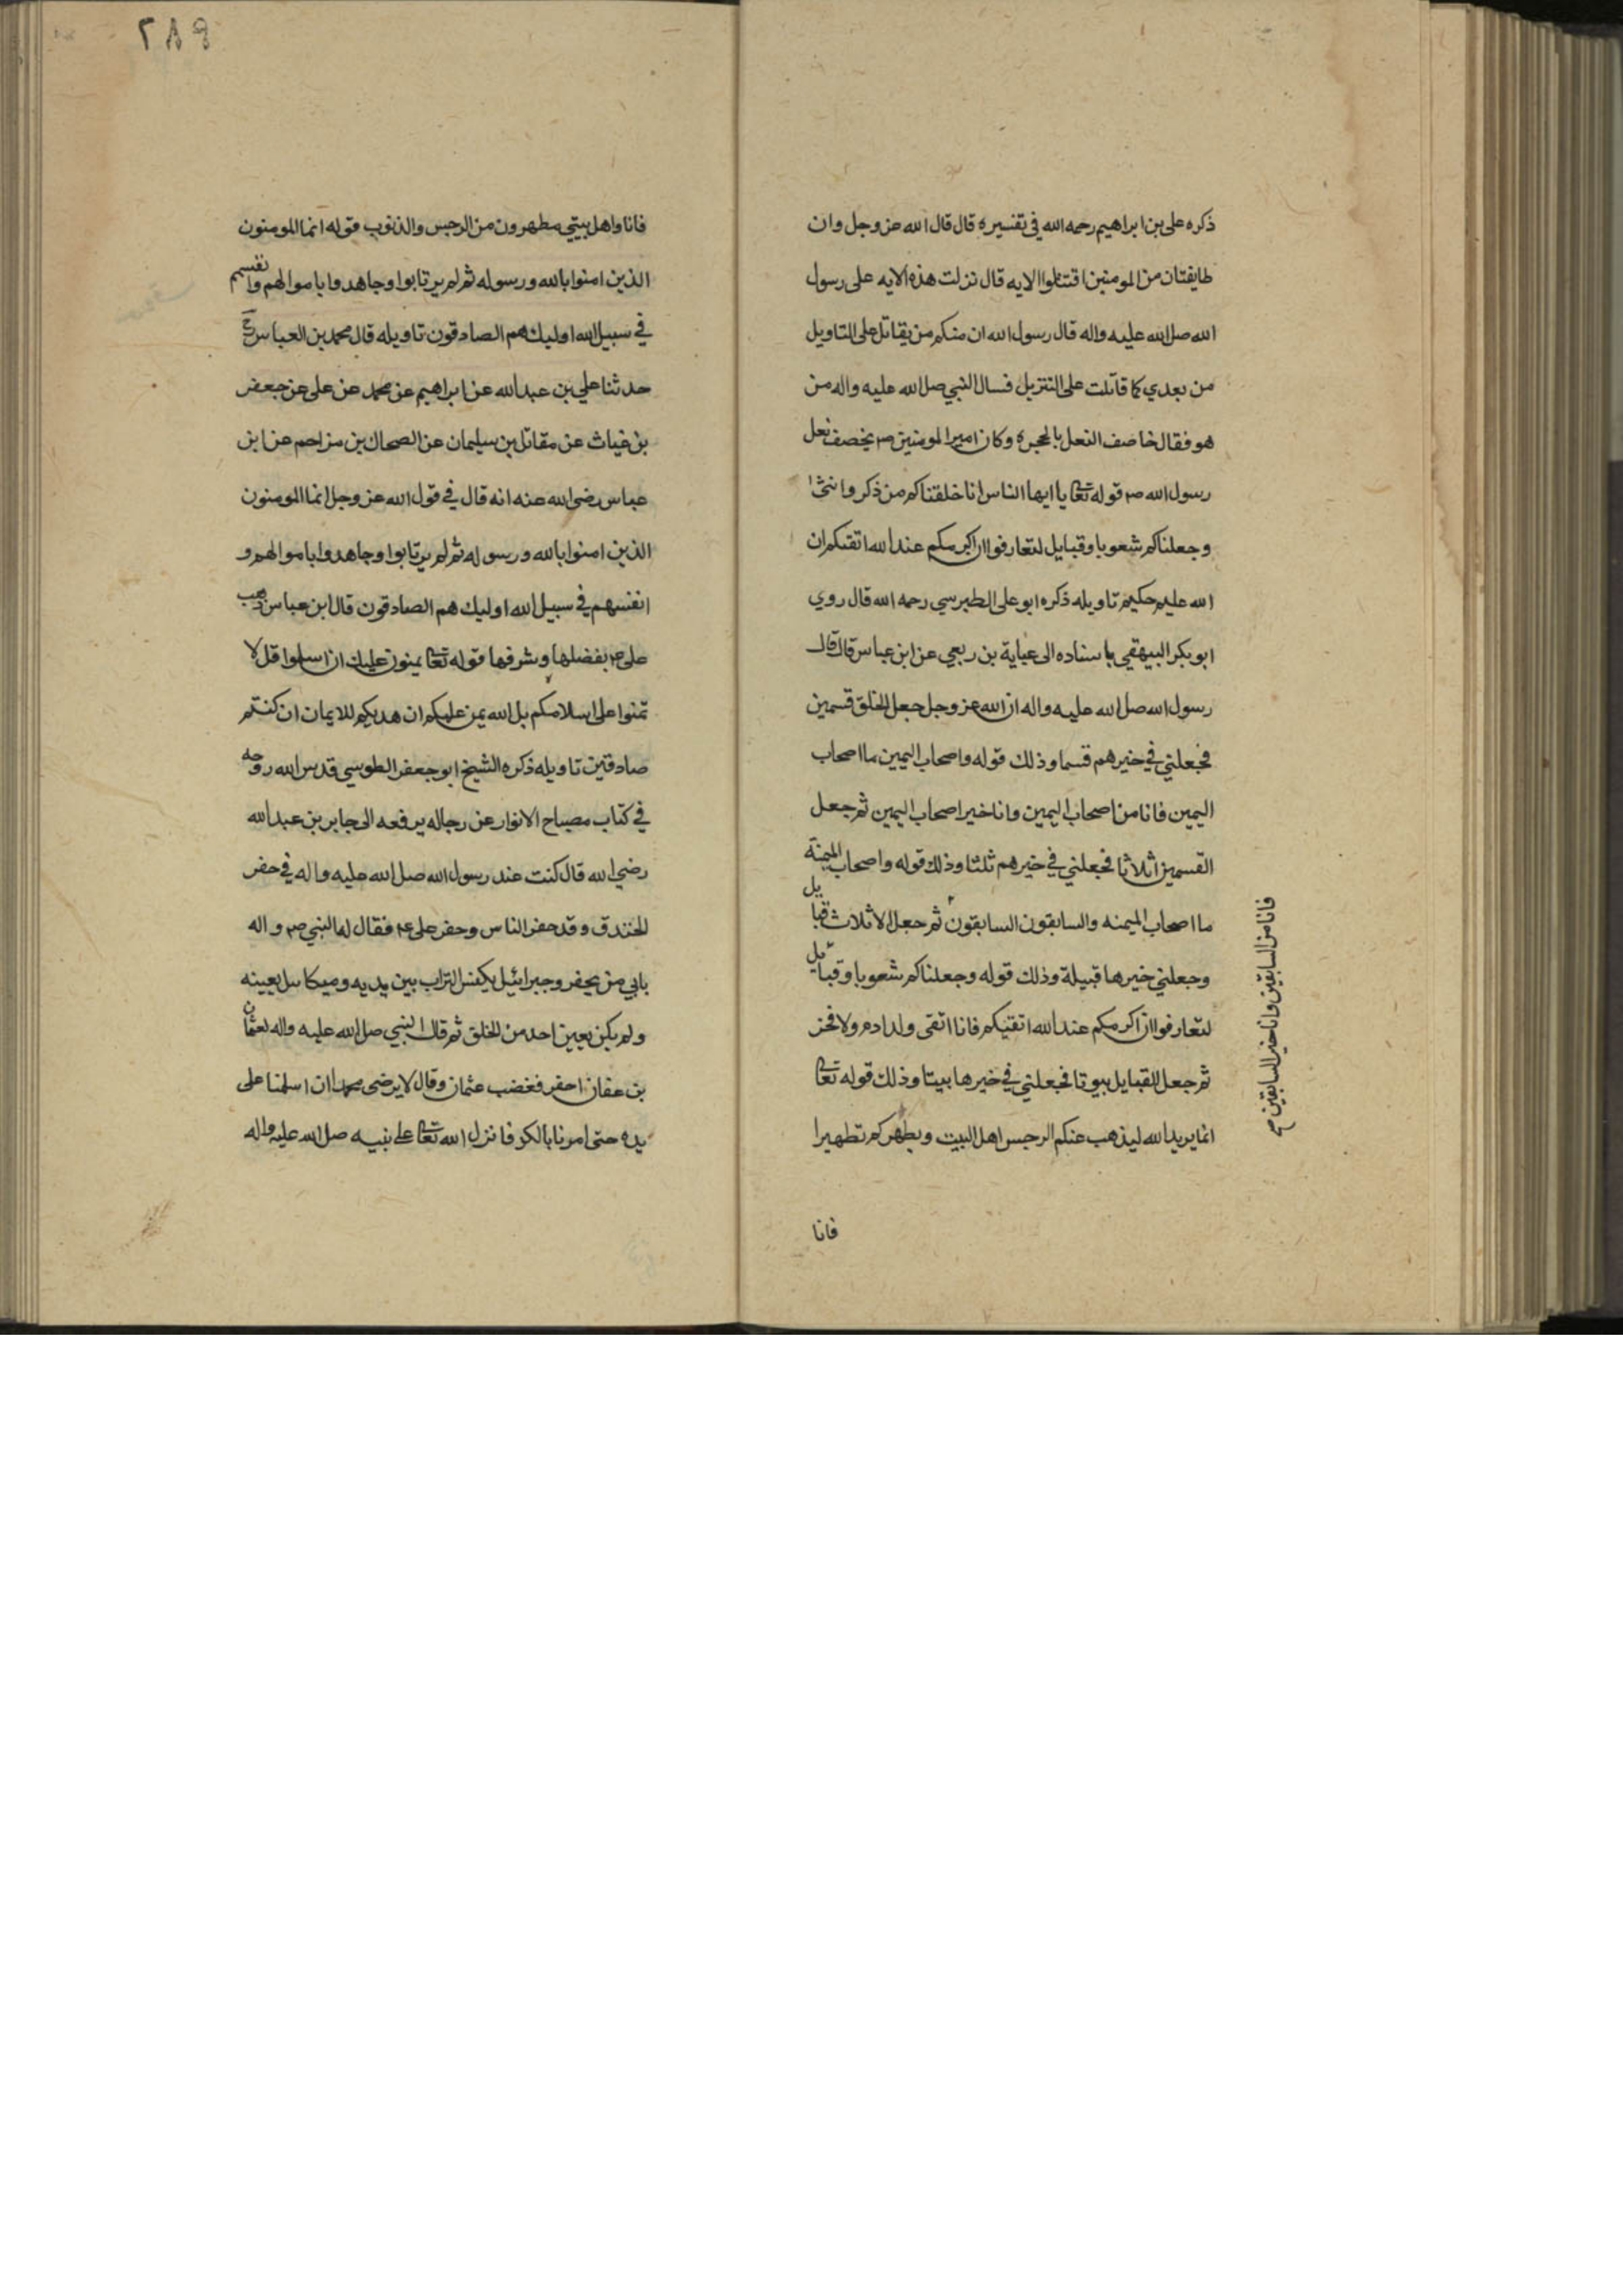 ذكره على بن ابراهيم رحمه الله في تفسيره قال قال الله عز وجل وان
طايفتان من المومنين اقتتلوا الايه قال نزلت هذه الايه على رسول
الله صل الله عليه واله قال رسول الله ان منكم من يقاتل على التاويل
من بعدي كما قاتلت على التنزيل فسال النبي صل الله عليه واله من
هو فقال خاصف النعل بالحجره وكان امير المومنين ص يخصف نعل
رسول الله ص قوله تعا يا ايها الناس انا خلقناكم من ذكر وانثى
وجعلناكم شعوبا وقبايل لتعارفوا ان اكرمكم عند الله اتقيكم ان
الله عليم حكيم تاويله ذكره ابو على الطبرسي رحمه الله قال روي
ابو بكر البيهقي باسناده الى عباية بن ربعي عن ابن عباس قال قال
رسول الله صل الله عليه واله ان الله عز وجل جعل الخلق قسمين
فجعلني في خيرهم قسما وذلك قوله واصحاب اليمين ما اصحاب
اليمين فانا من اصحاب اليمين وانا خير اصحاب اليمين ثم جعل
القسمين اثلاثا فجعلني في خيرهم ثلثا وذلك قوله واصحاب الميمنة
ما اصحاب الميمنه والسابقون السابقون ثم جعل الاثلاث قبايل
وجعلني خيرها قبيلة وذلك قوله وجعلناكم شعوبا وقبايل
لتعارفوا ان اكرمكم عند الله اتقيكم فانا اتقى ولد ادم ولا فخر
ثم جعل القبايل بيوتا فجعلني في خيرها بيتا وذلك قوله تعا
انما يريد الله ليذهب عنكم الرجس اهل البيت ويطهركم تطهيرا
فانا
فانا من السابقين وانا خير السابقين صح
٢٨٩
فانا واهل بيتي مطهرون من الرجس والذنوب قوله انما المومنون
الذين امنوا بالله ورسوله ثم لم يرتابوا وجاهدوا باموالهم وانفسهم
في سبيل الله اوليك هم الصادقون تاويله قال محمد بن العباس رح
حدثنا علي بن عبد الله عن ابراهيم عن محمد عن على عن جعفر
بن غياث عن مقاتل بن سليمان عن الضحاك بن مزاحم عن ابن
عباس رضي الله عنه انه قال في قول الله عز وجل انما المومنون
الذين امنوا بالله ورسوله ثم لم يرتابوا وجاهدوا باموالهم و
انفسهم في سبيل الله اوليك هم الصادقون قال ابن عباس ذهب
على ع بفضلها وشرفها قوله تعا يمنون عليك ان اسلموا قل لا
تمنوا على اسلامكم بل الله يمن عليكم ان هديكم للايمان ان كنتم
صادقين تاويله ذكره الشيخ ابو جعفر الطوسي قدس الله روحه
في كتاب مصباح الانوار عن رجاله يرفعه الى جابر بن عبد الله
رضي الله قال كنت عند رسول الله صل الله عليه واله في حفر
الخندق وقد حفر الناس وحفر على ع فقال له النبي ص واله
بابي من يحفر وجبرائيل يكنس التراب بين يديه وميكاىل يعينه
ولم يكن يعين احد من الخلق ثم قال النبي صل الله عليه واله لعثمان
بن عفان احفر فغضب عثمان وقال لا يرضى محمد ان اسلمنا على
يده حتى امرنا بالكد فانزل الله تعا على نبيه صل الله عليه واله